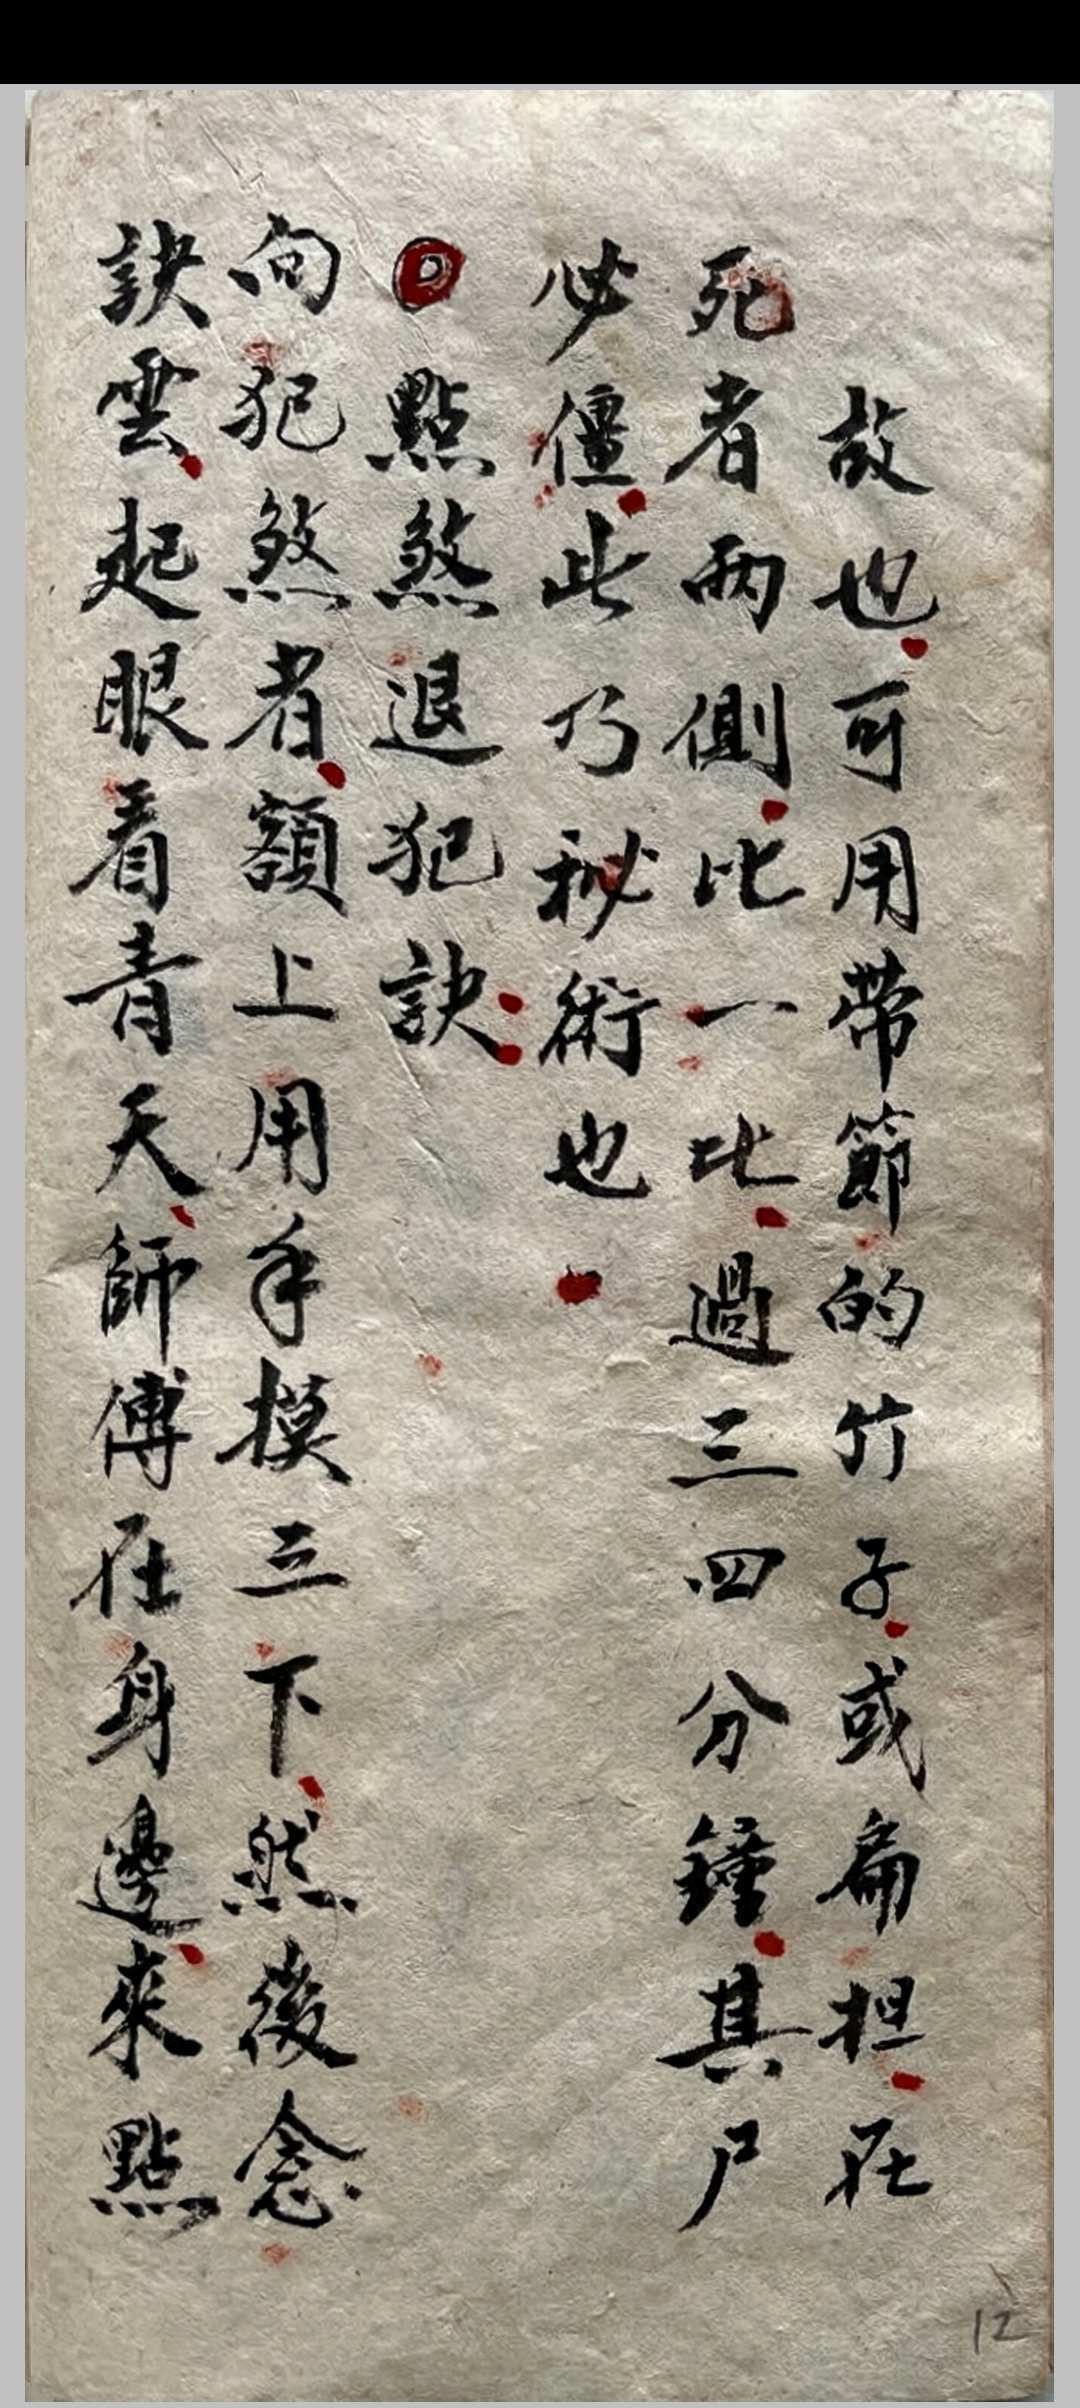 故也可用帶節的竹子或扁担在
死者兩側比一比過三四分鐘其尸
必僵此乃秘術也
點煞退犯訣
向犯煞者額上用手摸三下然後念
訣雲起眼看青天師傅在身邊來點
12